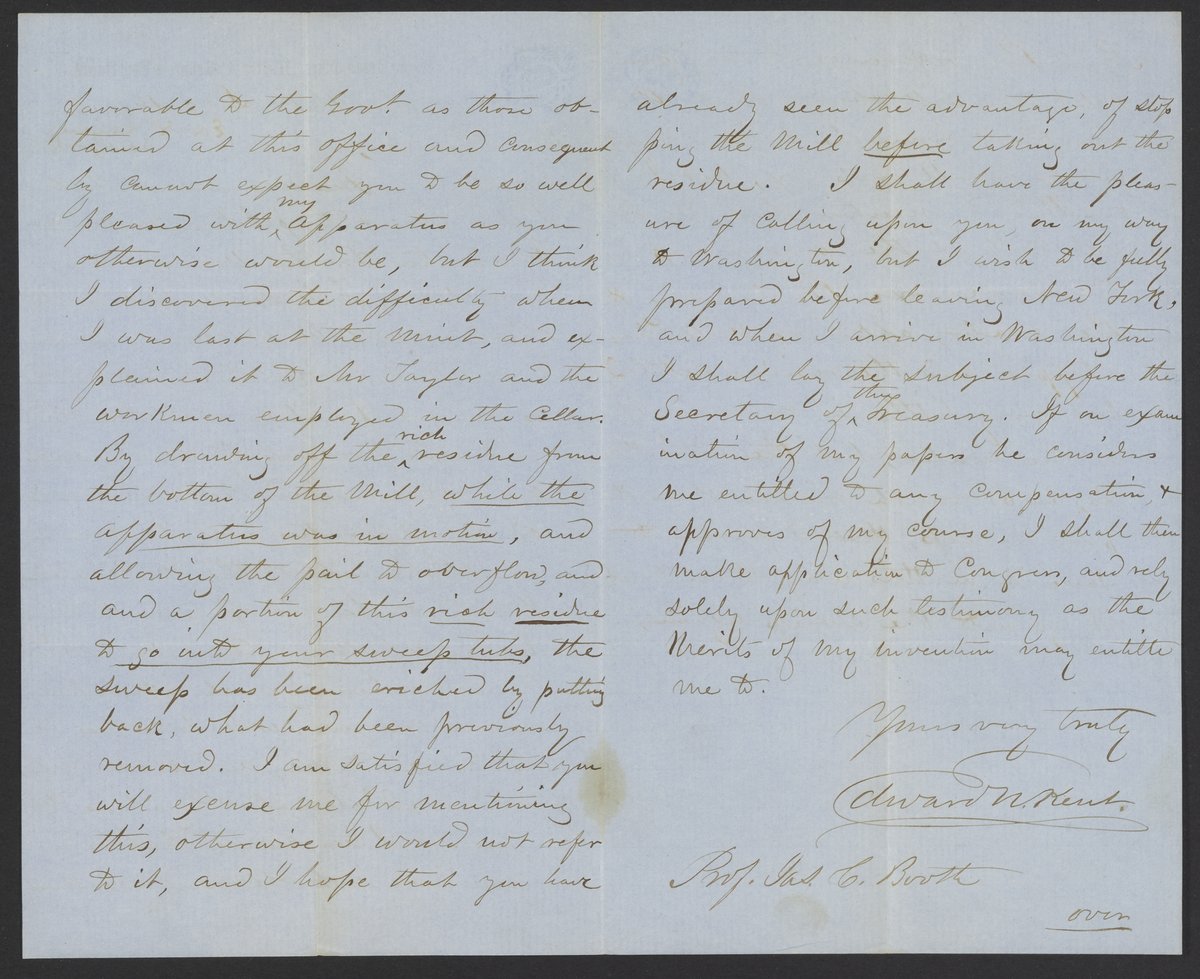 favorable to the Govt. as those ob-
tained at this office and consequent
ly cannot expect you to be so well
my
pleased with, apparatus as you
otherwise would be, but I think
I discovered the difficulty when
I was last at the Mint, and ex-
plained it to Mr Taylor and the
workmen employed in the cellar.
rich
By drawing off the residue from
the bottom of the Mill, while the
apparatus was in motion, and
allowing the pail to overflow, and
and a portion of this rich residue
to go into your sweep tubs, the
sweep has been eriched by putting
back, what had been previously
removed. I am satisfied that you
will excuse me for mentioning
this, otherwise I would not refer
to it, and I hope that you have
already seen the advantage, of stop
ping the Mill before taking out the
residue. I shall have the pleas-
ure of calling upon you, on my way
to Washington, but I wish to be fully
prepared before leaving New York,
and when I arrive in Washington
I shall lay the subject before the
the
Secretary of Treasury. If on exam
ination of my papers he considers
me entitled to any compensation, &
approves of my course, I shall then
make application to Congress, and rely
solely upon such testimony as the
Merits of my invention may entitle
me to.
Yours very truly
Edward N. Kent.
Prof. Jas. C. Booth
over